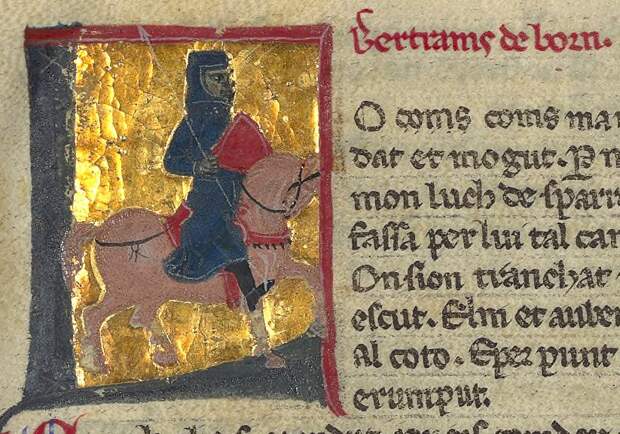 Bertrams de born.
LO coms coms man
dat et mogut. P n
mon luch de sparr
fassa per lui tal can
On sion tranchat
escut. Elm et auber
al coto. Eper punt
erumput.